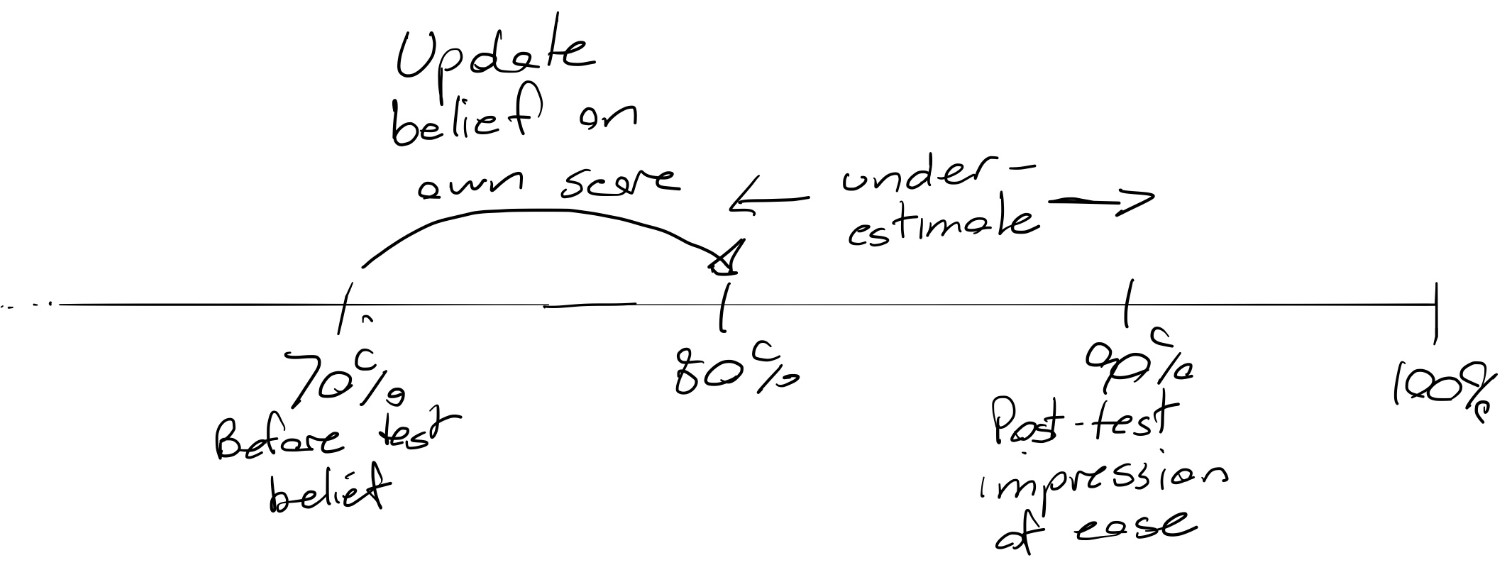 Update
belief on
own score
under-
estimate
70%
80%
90%
100%
Before test
belief
Post-test
impression
of ease